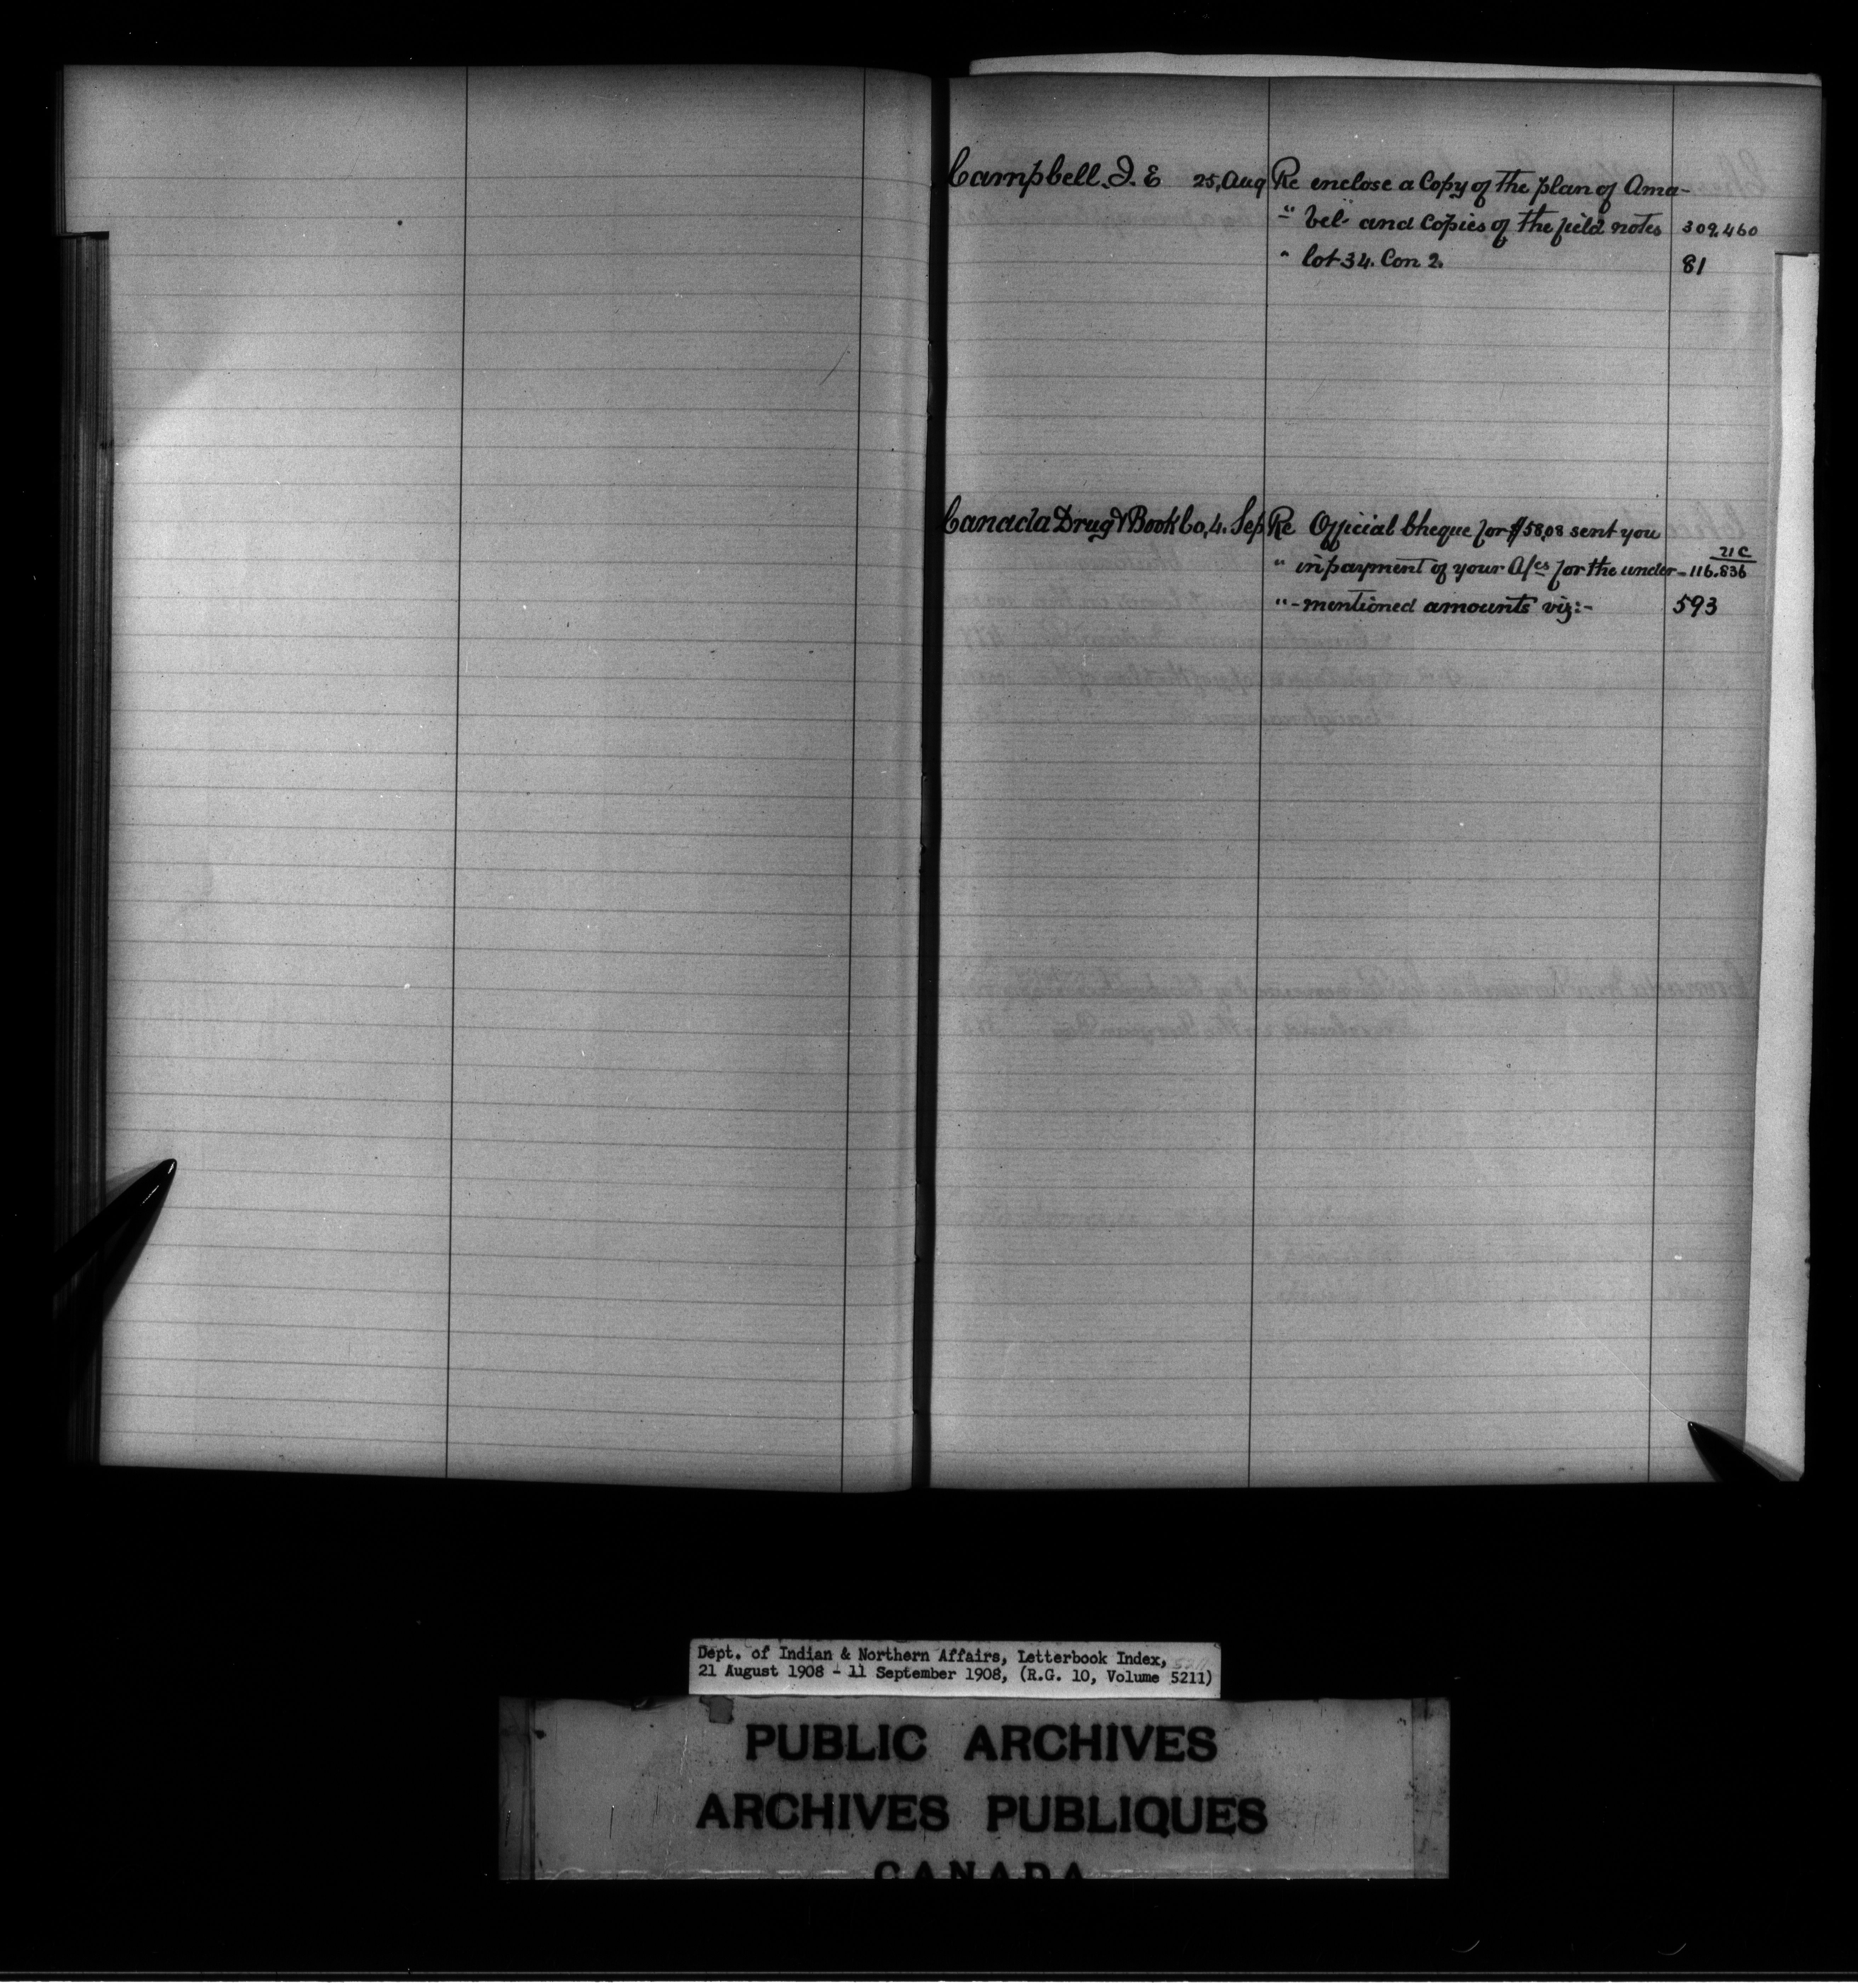 Campbell. J. E 25, Aug Re enclose a Copy of the plan of Ama-
" bel" and Copies of the field notes 309,460
" lot 34. Con 2. 81
Canada Drug & Book Co, 4. Sep Re Official Cheque for $58,08 sent you
21 C
" in payment of your A/cs for the under- 116.836
" -mentioned amounts viz:- 593
Dept. of Indian & Northern Affairs, Letterbook Index,
21 August 1908 - 11 September 1908, (R.G. 10, Volume 5211)
PUBLIC ARCHIVES
ARCHIVES PUBLIQUES
CANADA